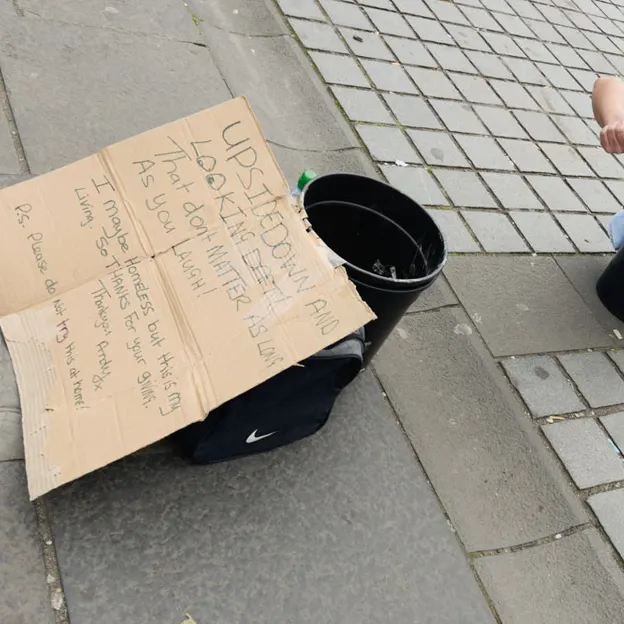 UPSIDEDOWN AND
LOOKING DAFT
That don't MATTER AS LONG
AS you LAUGH!
I maybe Homeless but this is my
Living. So THANKS For your giving.
Thankyou Andy xx
P.S. Please do Not try this at home!